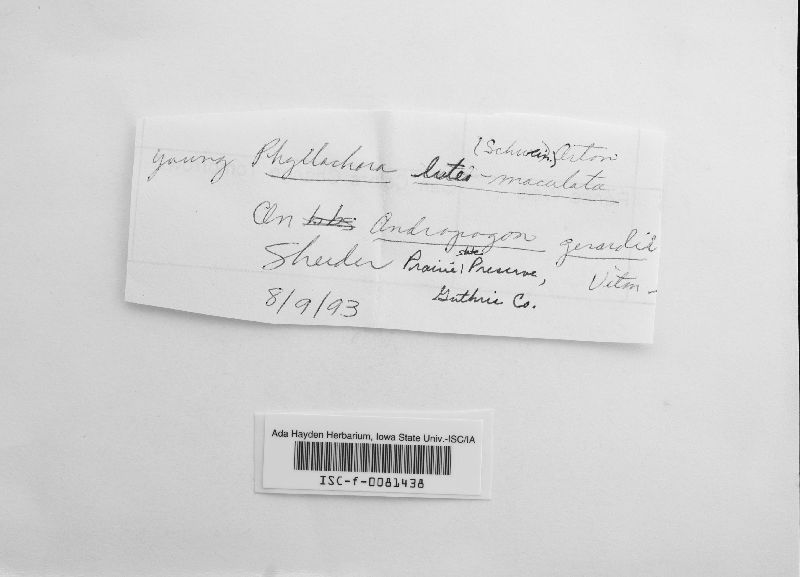 young Phyllachora luteo-maculata (Schwein.) Orton
On Andropogon gerardii Vitm-
Sheeder Prairie State Preserve,
8/9/93 Guthrie Co.
Ada Hayden Herbarium, Iowa State Univ.-ISC/IA
ISC-f-0081438